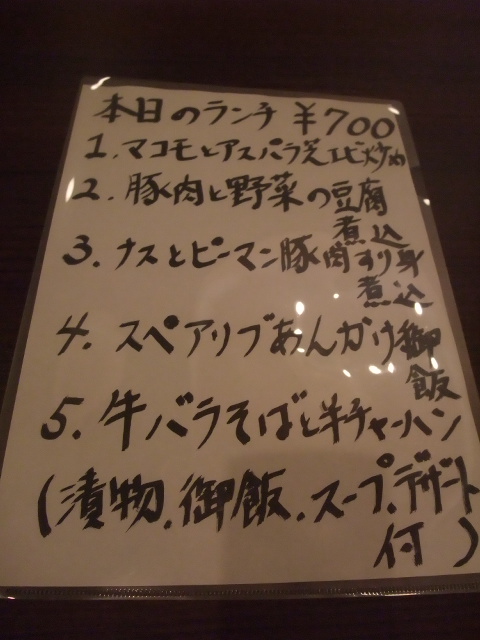 本日のランチ ¥700
1. マコモとアスパラ芝エビ炒め
2. 豚肉と野菜の豆腐
煮込
3. ナスとピーマン豚肉すり身
煮込
4. スペアリブあんかけ御
飯
5. 牛バラそばと半チャーハン
(漬物.御飯.スープ.デザート
付)